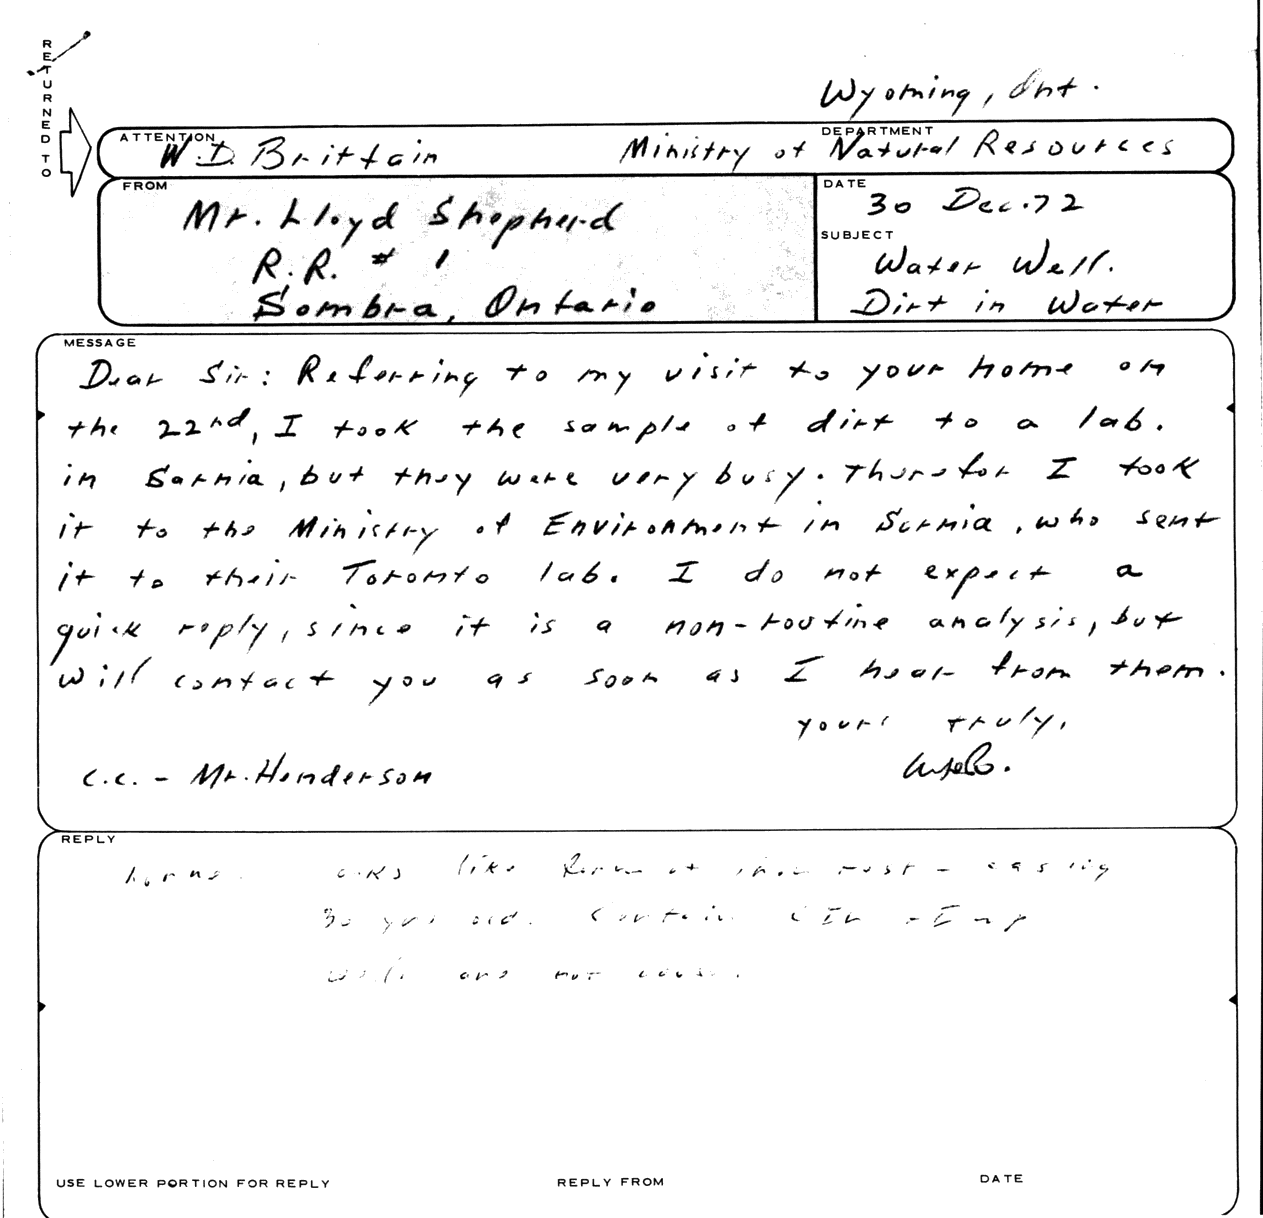 RETURNED TO
Wyoming, Ont.
ATTENTION
DEPARTMENT
W.D. Brittain Ministry of Natural Resources
FROM
Mr. Lloyd Shepherd
R.R. # 1
Sombra, Ontario
DATE
30 Dec. 72
SUBJECT
Water Well.
Dirt in Water
MESSAGE
Dear Sir: Referring to my visit to your home on
the 22nd, I took the sample of dirt to a lab.
in Sarnia, but they were very busy. Therefor I took
it to the Ministry of Environment in Sarnia, who sent
it to their Toronto lab. I do not expect a
quick reply, since it is a non-routine analysis, but
will contact you as soon as I hear from them.
yours truly,
c.c. - Mr. Henderson
REPLY
like rust - casing
30 yrs old.
not
USE LOWER PORTION FOR REPLY REPLY FROM DATE